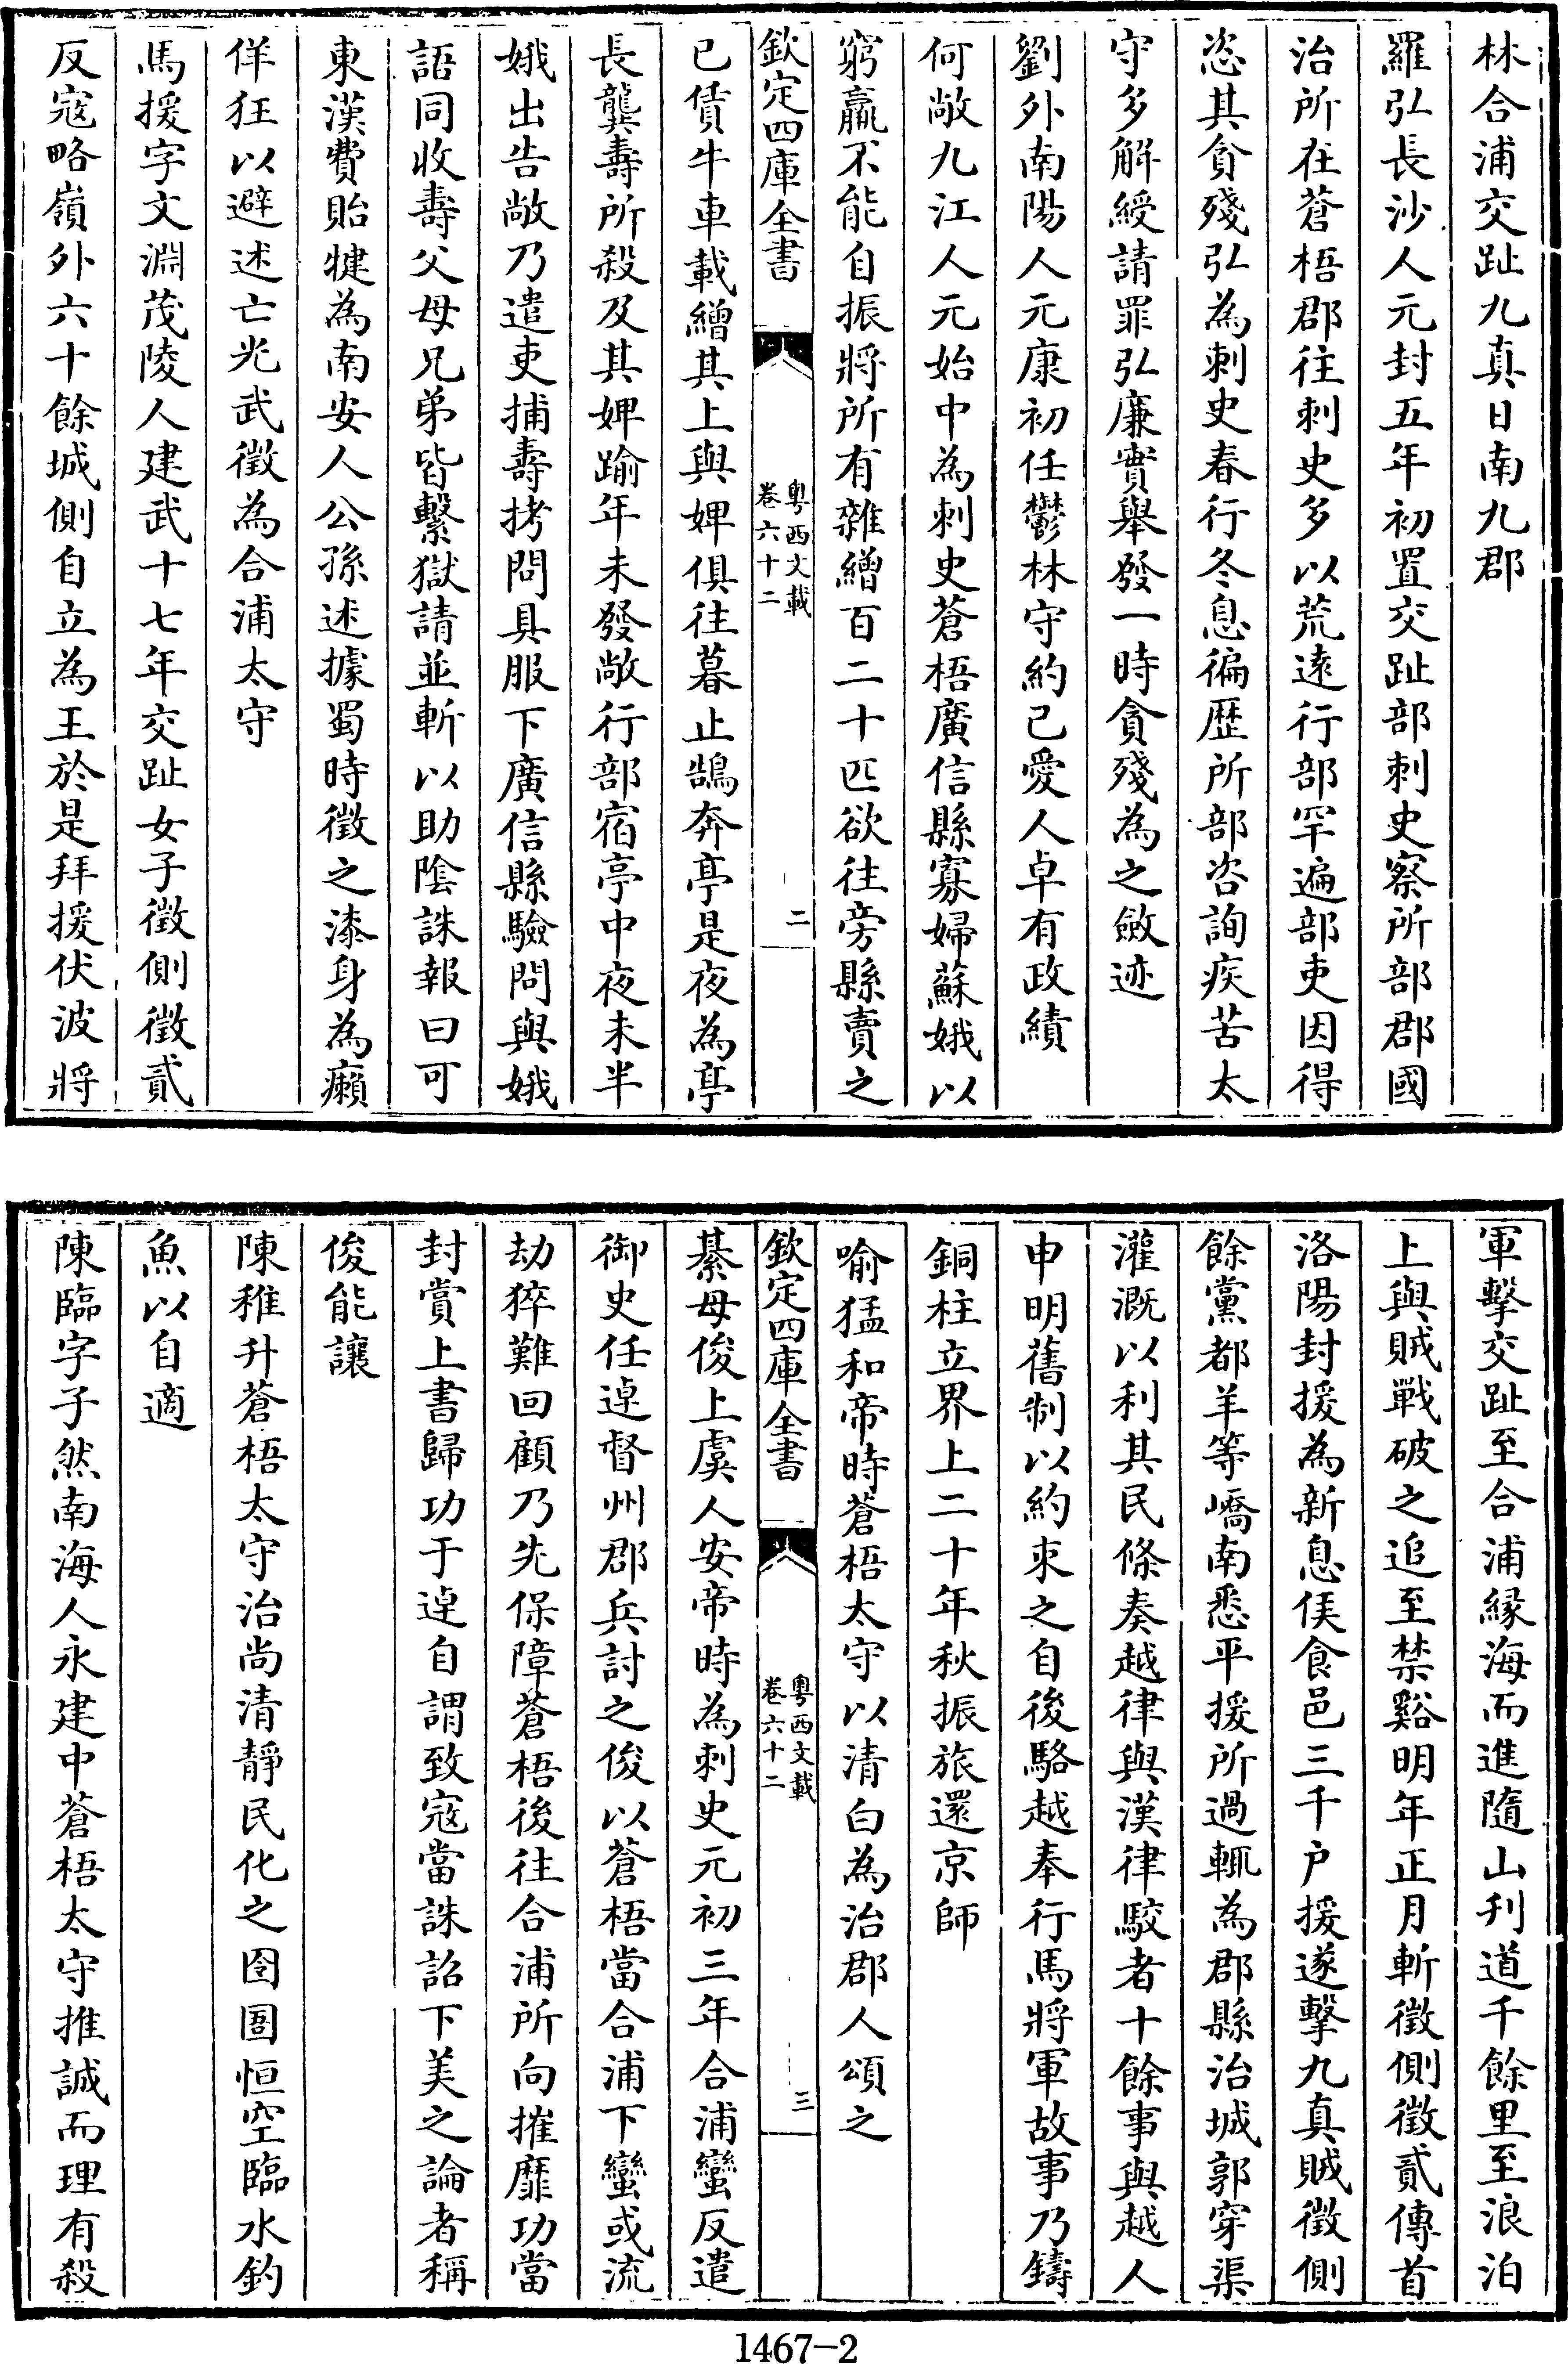 林合浦交趾九真日南九郡
羅弘長沙人元封五年初置交趾部刺史察所部郡國
治所在蒼梧郡往刺史多以荒遠行部罕遍部吏因得
恣其貪殘弘為刺史春行冬息徧歷所部咨詢疾苦太
守多解綬請罪弘廉實舉發一時貪殘為之斂迹
劉外南陽人元康初任鬱林守約己愛人卓有政績
何敞九江人元始中為刺史蒼梧廣信縣寡婦蘇娥以
窮羸不能自振將所有雜繒百二十匹欲往旁縣賣之
欽定四庫全書
粤西文載
卷六十二
二
已賃牛車載繒其上與婢俱往暮止鵠奔亭是夜為亭
長龔壽所殺及其婢踰年未發敞行部宿亭中夜未半
娥出告敞乃遣吏捕壽拷問具服下廣信縣驗問與娥
語同收壽父母兄弟皆繫獄請並斬以助陰誅報曰可
東漢費貽犍為南安人公孫述據蜀時徵之漆身為癩
佯狂以避述亡光武徵為合浦太守
馬援字文淵茂陵人建武十七年交趾女子徵側徵貳
反寇略嶺外六十餘城側自立為王於是拜援伏波將
軍擊交趾至合浦緣海而進隨山刋道千餘里至浪泊
上與賊戰破之追至禁谿明年正月斬徵側徵貳傳首
洛陽封援為新息侯食邑三千户援遂擊九真賊徵側
餘黨都羊等嶠南悉平援所過輒為郡縣治城郭穿渠
灌溉以利其民條奏越律與漢律駮者十餘事與越人
申明舊制以約束之自後駱越奉行馬將軍故事乃鑄
銅柱立界上二十年秋振旅還京師
喻猛和帝時蒼梧太守以清白為治郡人頌之
欽定四庫全書
粤西文載
卷六十二
三
綦母俊上虞人安帝時為刺史元初三年合浦蠻反遣
御史任逴督州郡兵討之俊以蒼梧當合浦下蠻或流
劫猝難回顧乃先保障蒼梧後往合浦所向摧靡功當
封賞上書歸功于逴自謂致寇當誅詔下美之論者稱
俊能讓
陳稚升蒼梧太守治尚清靜民化之囹圄恒空臨水釣
魚以自適
陳臨字子然南海人永建中蒼梧太守推誠而理有殺
1467-2